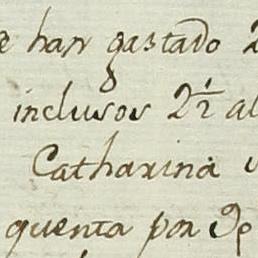 e han gastado 2
inclusos 2½ al
Catharina
quenta por